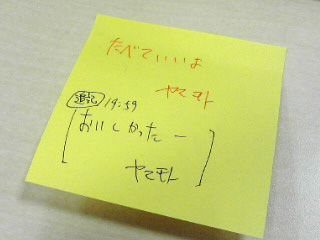 たべていいよ
ヤマモト
追記 19:59
おいしかったー
ヤマモト